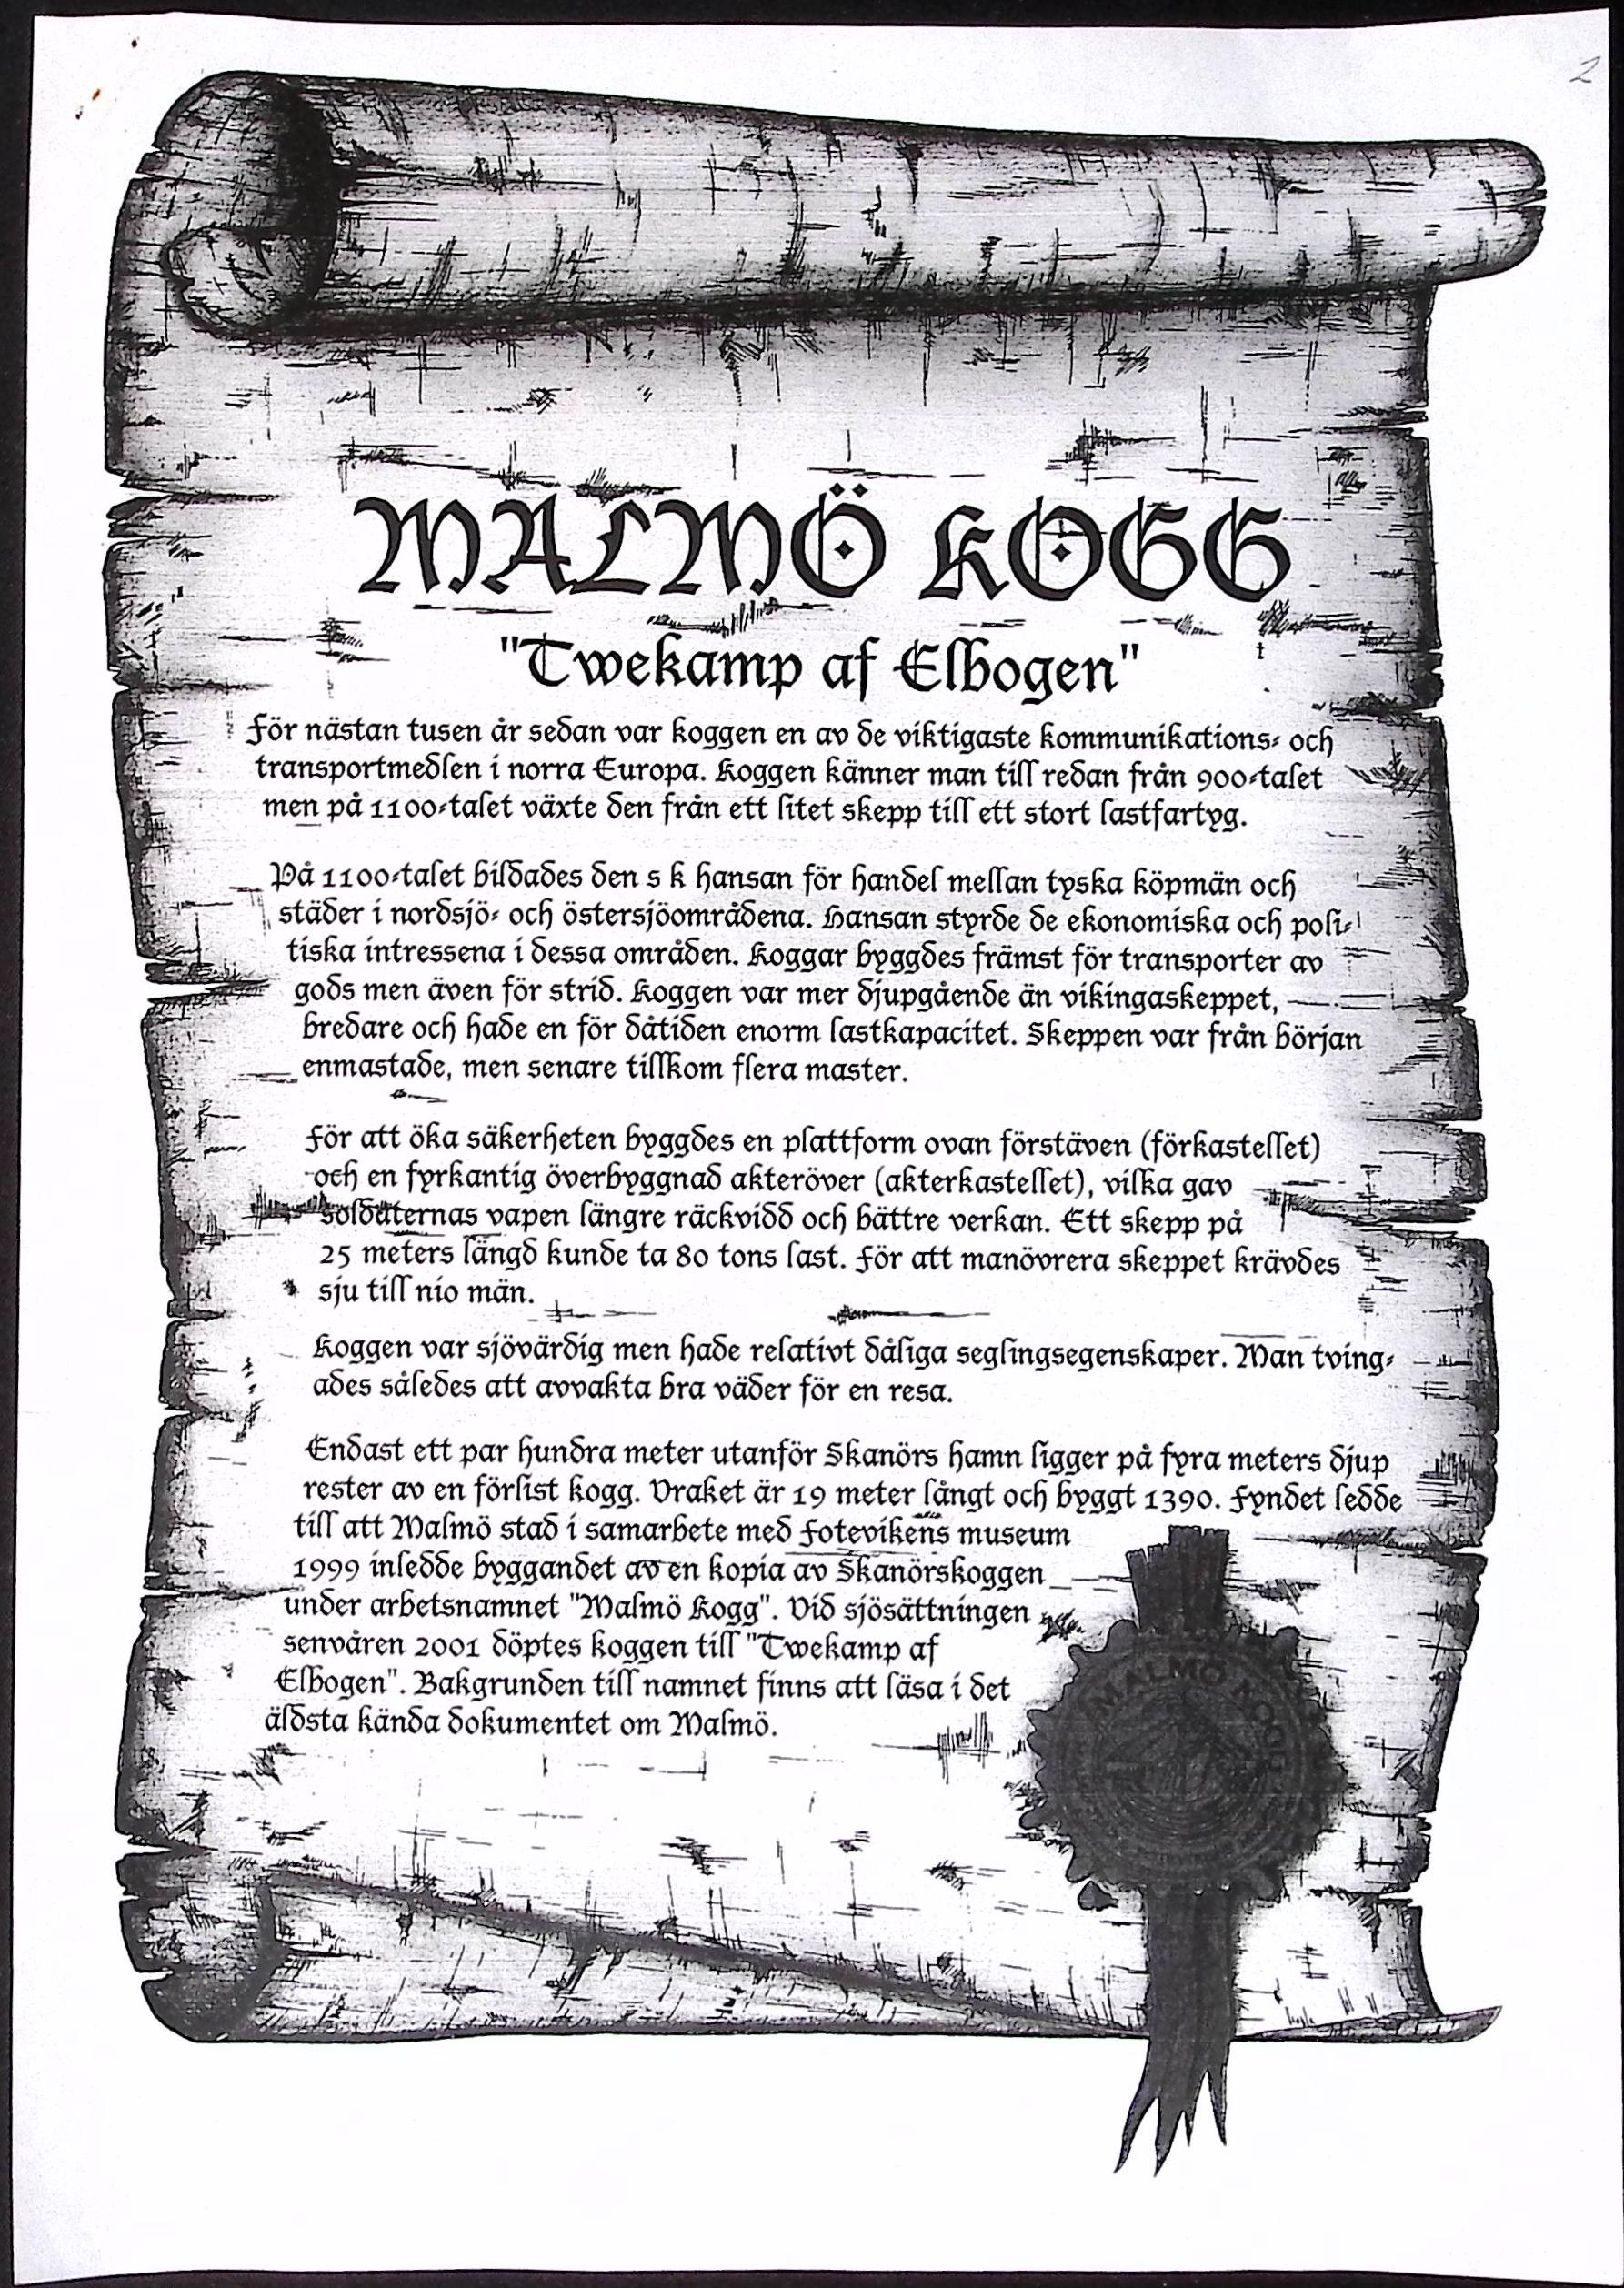 2
MALMÖ KOGG
"Twekamp af Elbogen"
För nästan tusen år sedan var koggen en av de viktigaste kommunikations- och
transportmedlen i norra Europa. Koggen känner man till redan från 900-talet
men på 1100-talet växte den från ett litet skepp till ett stort lastfartyg.
På 1100-talet bildades den s k hansan för handel mellan tyska köpmän och
städer i nordsjö- och östersjöområdena. Hansan styrde de ekonomiska och poli-
tiska intressena i dessa områden. Koggar byggdes främst för transporter av
gods men även för strid. Koggen var mer djupgående än vikingaskeppet,
bredare och hade en för dåtiden enorm lastkapacitet. Skeppen var från början
enmastade, men senare tillkom flera master.
För att öka säkerheten byggdes en plattform ovan förstäven (förkastellet)
och en fyrkantig överbyggnad akteröver (akterkastellet), vilka gav
soldaternas vapen längre räckvidd och bättre verkan. Ett skepp på
25 meters längd kunde ta 80 tons last. För att manövrera skeppet krävdes
sju till nio män.
Koggen var sjövärdig men hade relativt dåliga seglingsegenskaper. Man tving-
ades således att avvakta bra väder för en resa.
Endast ett par hundra meter utanför Skanörs hamn ligger på fyra meters djup
rester av en förlist kogg. Vraket är 19 meter långt och byggt 1390. Fyndet ledde
till att Malmö stad i samarbete med Fotevikens museum
1999 inledde byggandet av en kopia av Skanörskoggen
under arbetsnamnet "Malmö Kogg". Vid sjösättningen
senvåren 2001 döptes koggen till "Twekamp af
Elbogen". Bakgrunden till namnet finns att läsa i det
äldsta kända dokumentet om Malmö.
MALMÖ KOGG